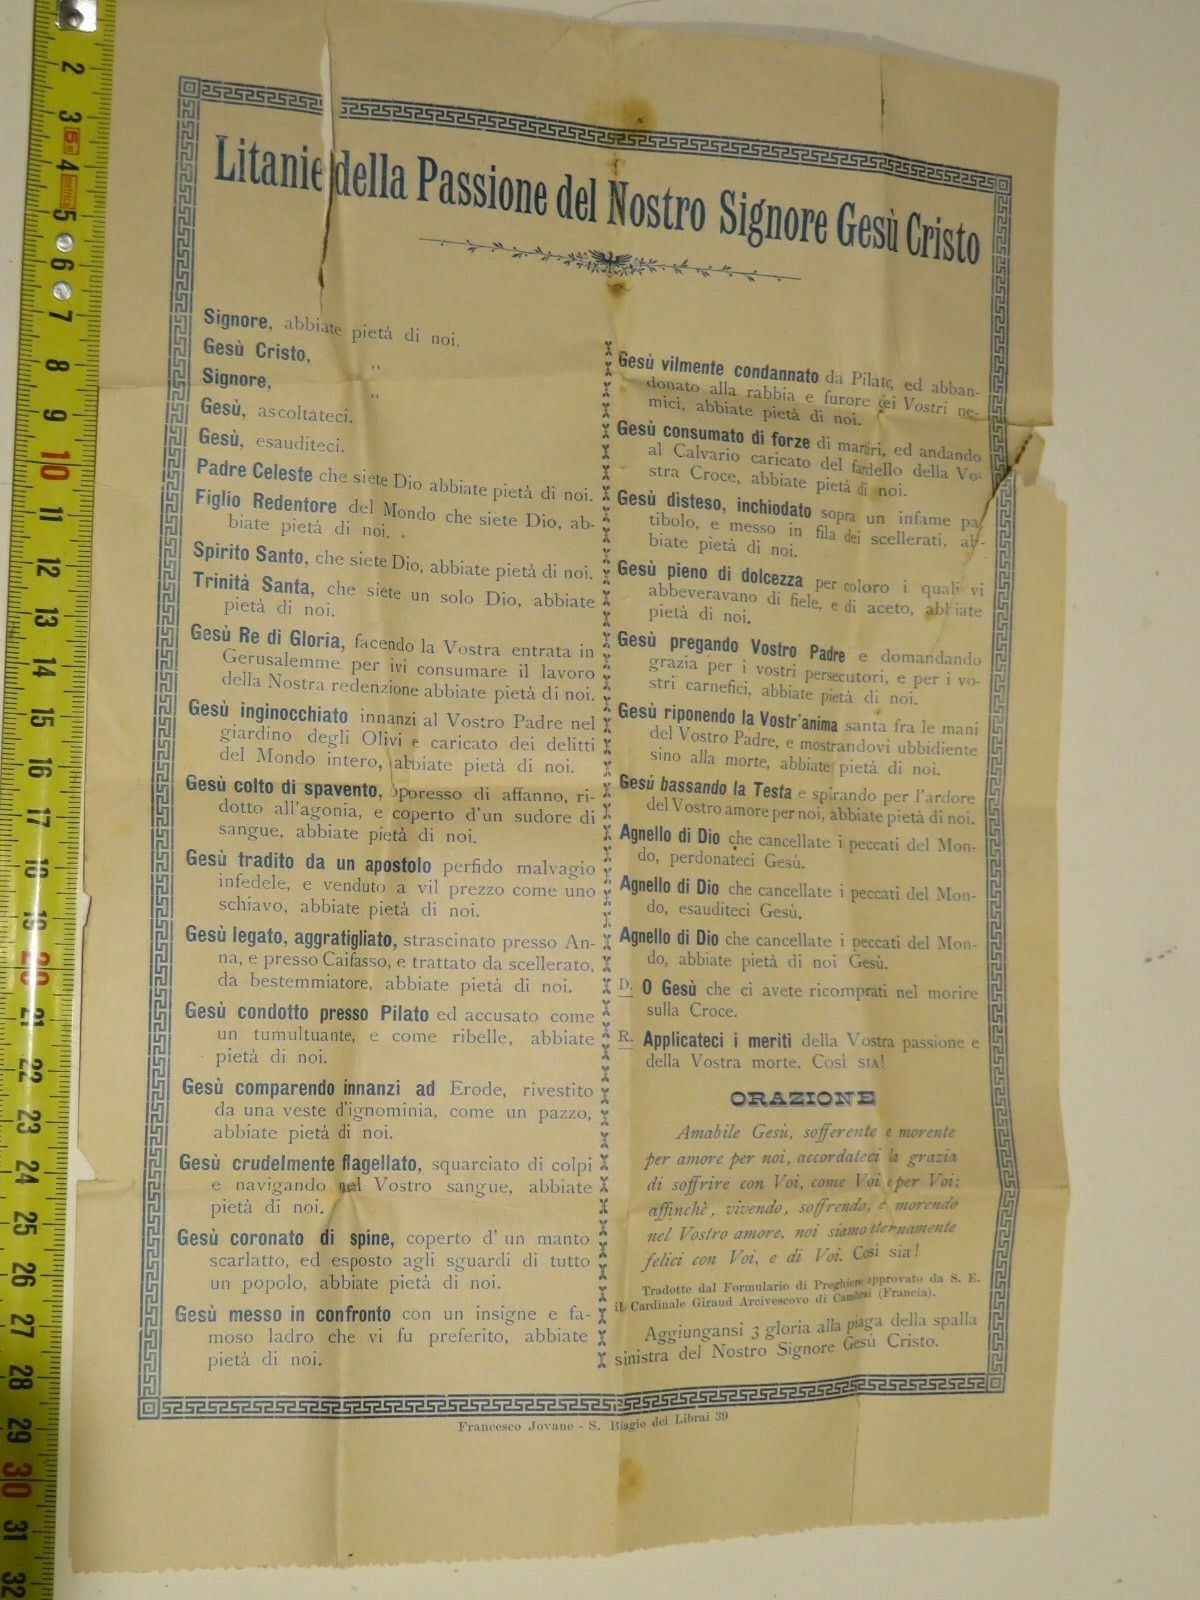 Litanie della Passione del Nostro Signore Gesù Cristo
Signore, abbiate pietà di noi.
Gesù Cristo, „
Signore, „
Gesù, ascoltateci.
Gesù, esauditeci.
Padre Celeste che siete Dio abbiate pietà di noi.
Figlio Redentore del Mondo che siete Dio, ab-
biate pietà di noi.
Spirito Santo, che siete Dio, abbiate pietà di noi.
Trinità Santa, che siete un solo Dio, abbiate
pietà di noi.
Gesù Re di Gloria, facendo la Vostra entrata in
Gerusalemme per ivi consumare il lavoro
della Nostra redenzione abbiate pietà di noi.
Gesù inginocchiato innanzi al Vostro Padre nel
giardino degli Olivi e caricato dei delitti
del Mondo intero, abbiate pietà di noi.
Gesù colto di spavento, oppresso di affanno, ri-
dotto all'agonia, e coperto d'un sudore di
sangue, abbiate pietà di noi.
Gesù tradito da un apostolo perfido malvagio
infedele, e venduto a vil prezzo come uno
schiavo, abbiate pietà di noi.
Gesù legato, aggratigliato, strascinato presso An-
na, e presso Caifasso, e trattato da scellerato,
da bestemmiatore, abbiate pietà di noi.
Gesù condotto presso Pilato ed accusato come
un tumultuante, e come ribelle, abbiate
pietà di noi.
Gesù comparendo innanzi ad Erode, rivestito
da una veste d'ignominia, come un pazzo,
abbiate pietà di noi.
Gesù crudelmente flagellato, squarciato di colpi
e navigando nel Vostro sangue, abbiate
pietà di noi.
Gesù coronato di spine, coperto d' un manto
scarlatto, ed esposto agli sguardi di tutto
un popolo, abbiate pietà di noi.
Gesù messo in confronto con un insigne e fa-
moso ladro che vi fu preferito, abbiate
pietà di noi.
Gesù vilmente condannato da Pilato, ed abban-
donato alla rabbia e furore dei Vostri ne-
mici, abbiate pietà di noi.
Gesù consumato di forze di martiri, ed andando
al Calvario caricato del fardello della Vo-
stra Croce, abbiate pietà di noi.
Gesù disteso, inchiodato sopra un infame pa-
tibolo, e messo in fila dei scellerati, ab-
biate pietà di noi.
Gesù pieno di dolcezza per coloro i quali vi
abbeveravano di fiele, e di aceto, abbiate
pietà di noi.
Gesù pregando Vostro Padre e domandando
grazia per i vostri persecutori, e per i vo-
stri carnefici, abbiate pietà di noi.
Gesù riponendo la Vostr'anima santa fra le mani
del Vostro Padre, e mostrandovi ubbidiente
sino alla morte, abbiate pietà di noi.
Gesù bassando la Testa e spirando per l'ardore
del Vostro amore per noi, abbiate pietà di noi.
Agnello di Dio che cancellate i peccati del Mon-
do, perdonateci Gesù.
Agnello di Dio che cancellate i peccati del Mon-
do, esauditeci Gesù.
Agnello di Dio che cancellate i peccati del Mon-
do, abbiate pietà di noi Gesù.
D. O Gesù che ci avete ricomprati nel morire
sulla Croce.
R. Applicateci i meriti della Vostra passione e
della Vostra morte. Così sia!
ORAZIONE
Amabile Gesù, sofferente e morente
per amore per noi, accordateci la grazia
di soffrire con Voi, come Voi e per Voi;
affinchè, vivendo, soffrendo, e morendo
nel Vostro amore, noi siamo eternamente
felici con Voi, e di Voi. Così sia!
Tradotte dal Formulario di Preghiere approvato da S. E.
il Cardinale Giraud Arcivescovo di Cambrai (Francia).
Aggiungansi 3 gloria alla piaga della spalla
sinistra del Nostro Signore Gesù Cristo.
Francesco Jovane - S. Biagio dei Librai 39
2
3
5m
4
metrica
5
6
7
8
9
10
11
12
13
14
15
16
17
18
19
20
21
22
23
24
25
26
27
28
29
30
31
32